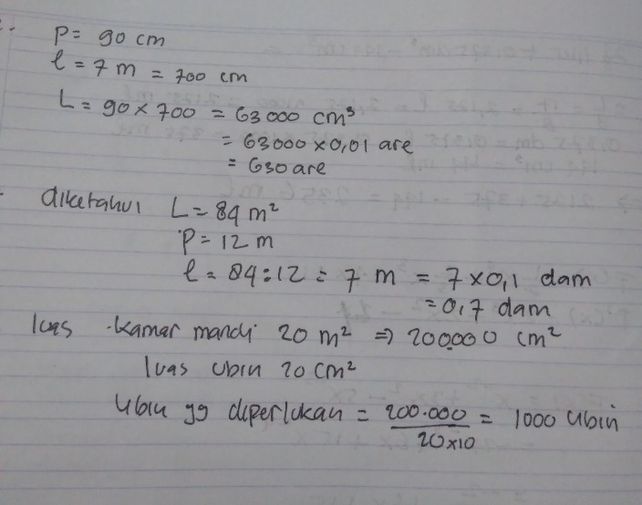 P = 90 cm
l = 7 m = 700 cm
L = 90 x 700 = 63000 cm³
= 63000 x 0,01 are
= 630 are
Diketahui L = 84 m²
P = 12 m
l = 84 : 12 = 7 m = 7 x 0,1 dam
= 0,7 dam
luas kamar mandi 20 m² ⇒ 200.000 cm²
luas ubin 20 cm²
Ubin yg diperlukan = 200.000 / 20x10 = 1000 ubin